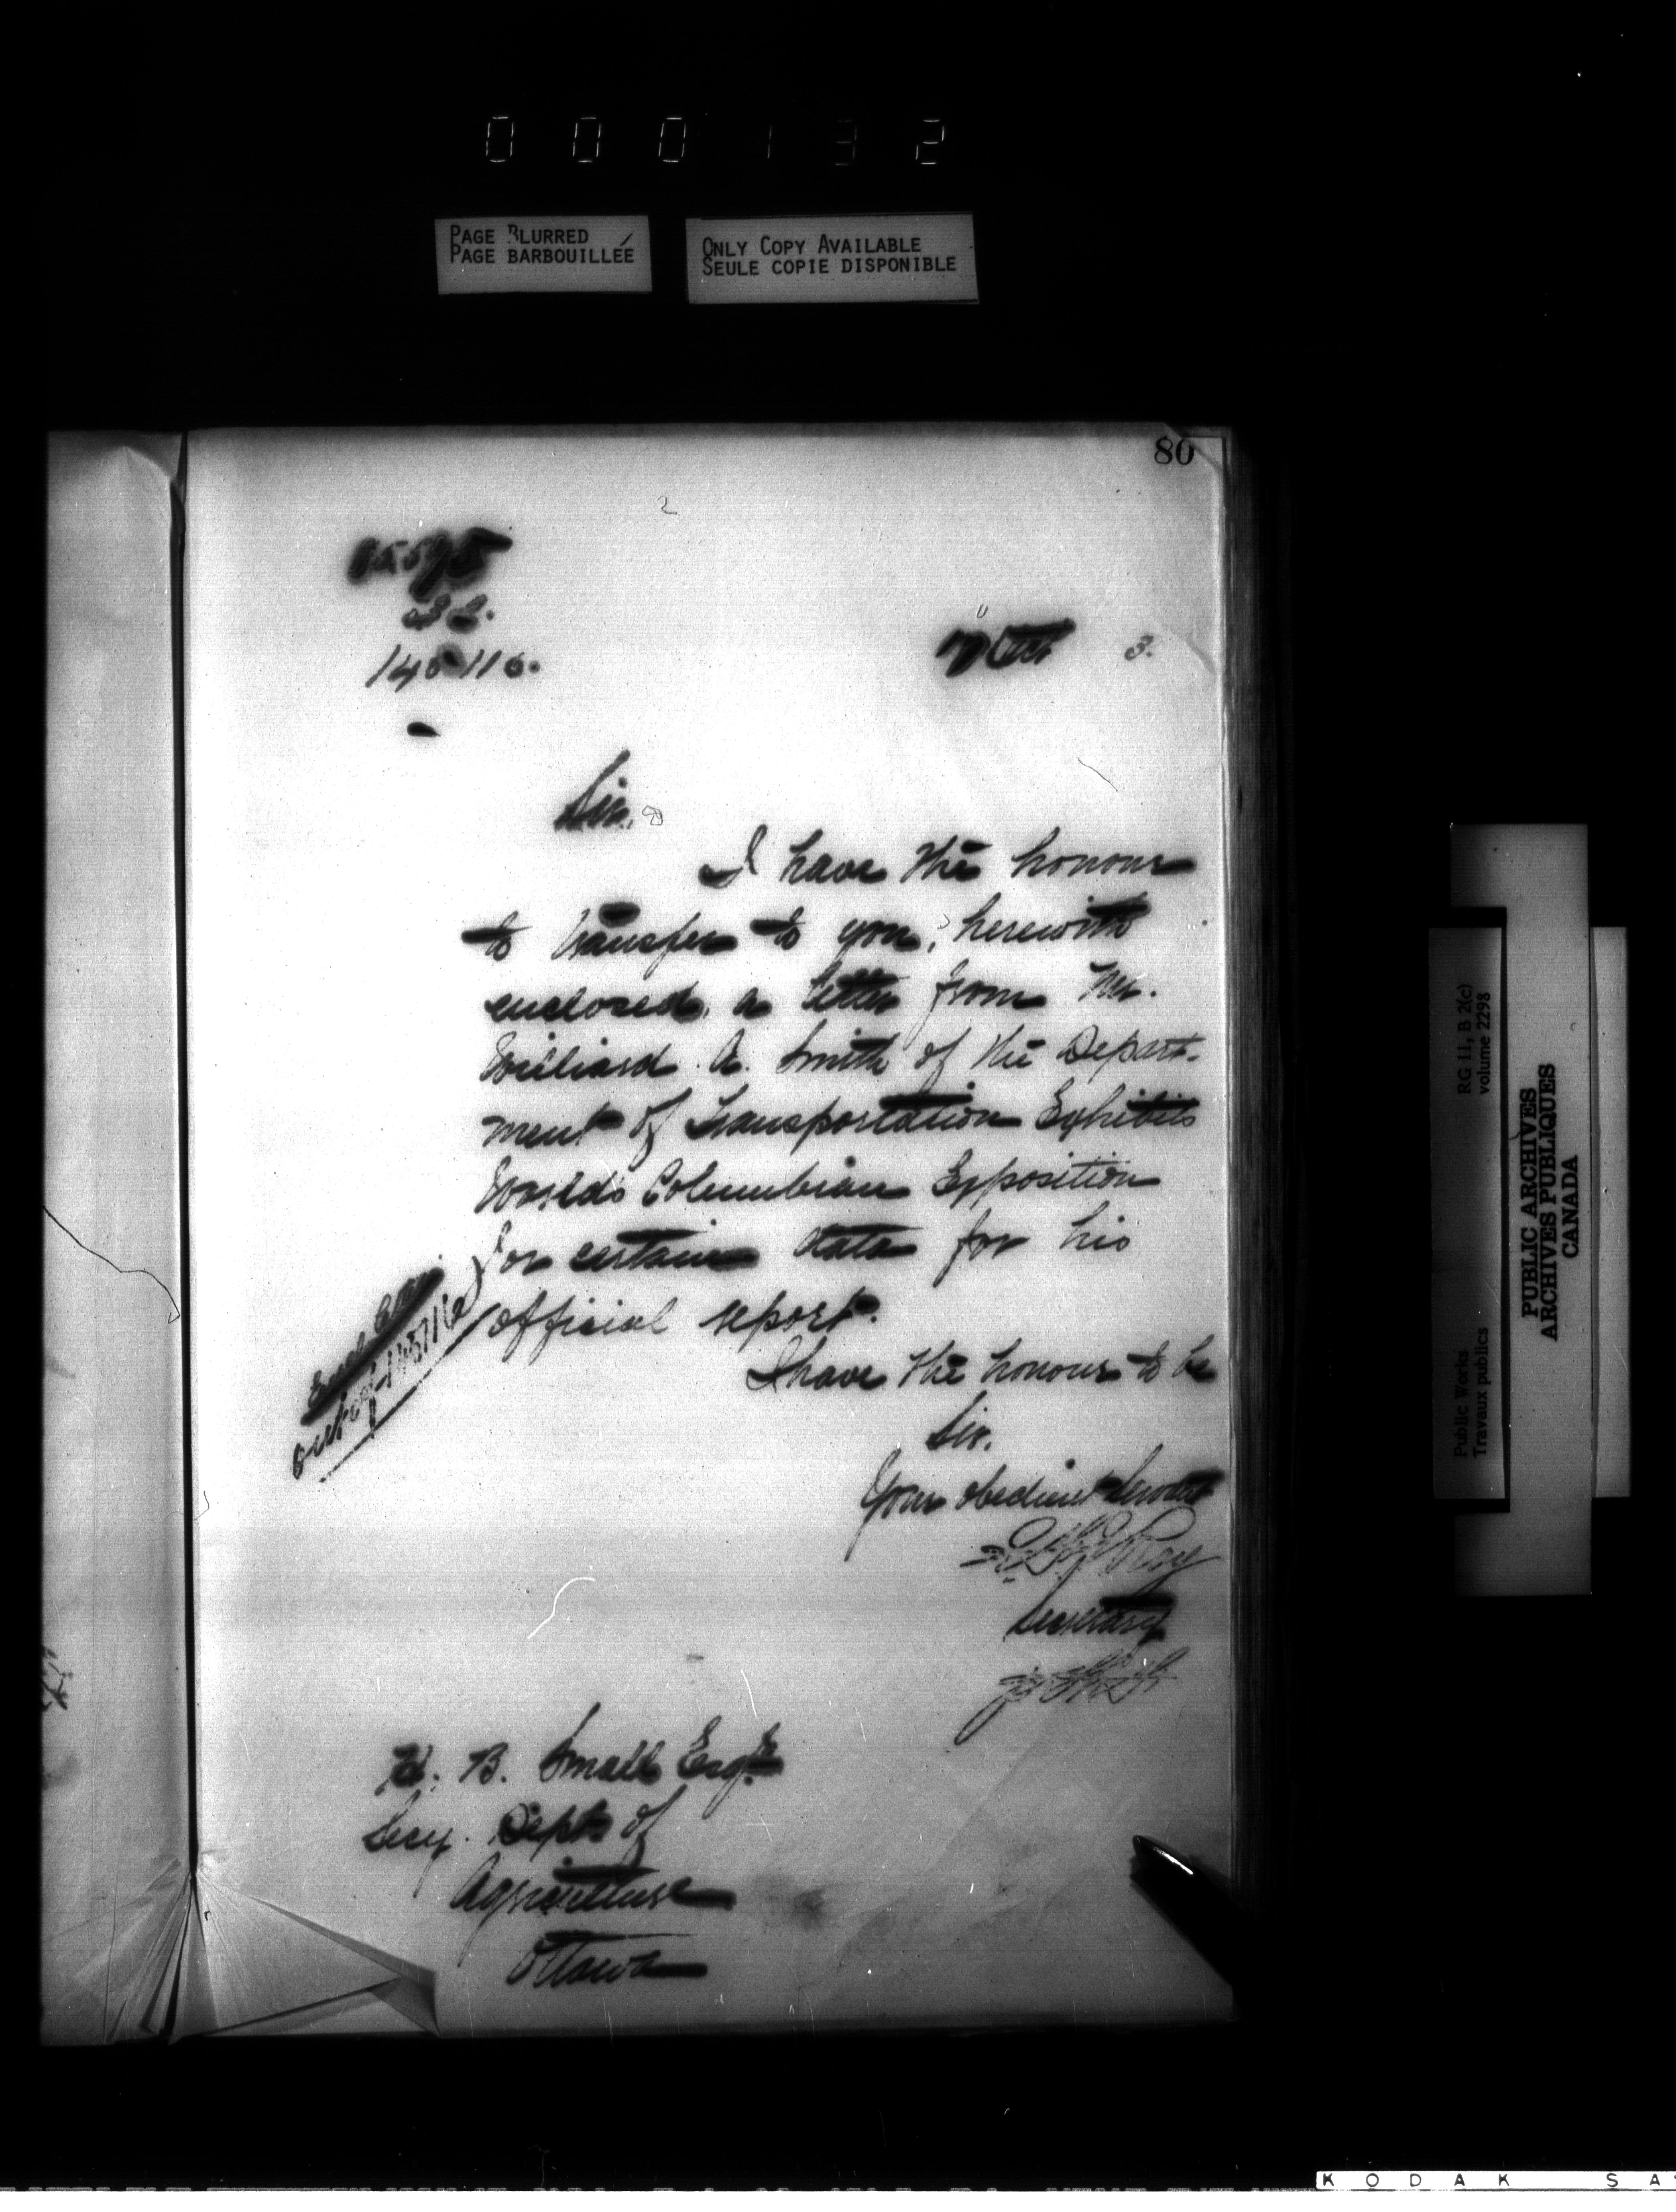 000132
PAGE BLURRED
PAGE BARBOUILLÉE
ONLY COPY AVAILABLE
SEULE COPIE DISPONIBLE
80
3.
Sir,
I have the honour
to transfer to you, herewith
enclosed, a letter from Mr.
Williard A. Smith of the Depart-
ment of Transportation Exhibits
World's Columbian Exposition
for certain data for his
official report.
I have the honour to be
Sir,
Your obedient Servant
Roy
Secretary
H. B. Small Esqre
Secy. Dept. of
Agriculture
Ottawa
RG 11, B 2(c)
volume 2298
Public Works
Travaux publics
PUBLIC ARCHIVES
ARCHIVES PUBLIQUES
CANADA
KODAK SA